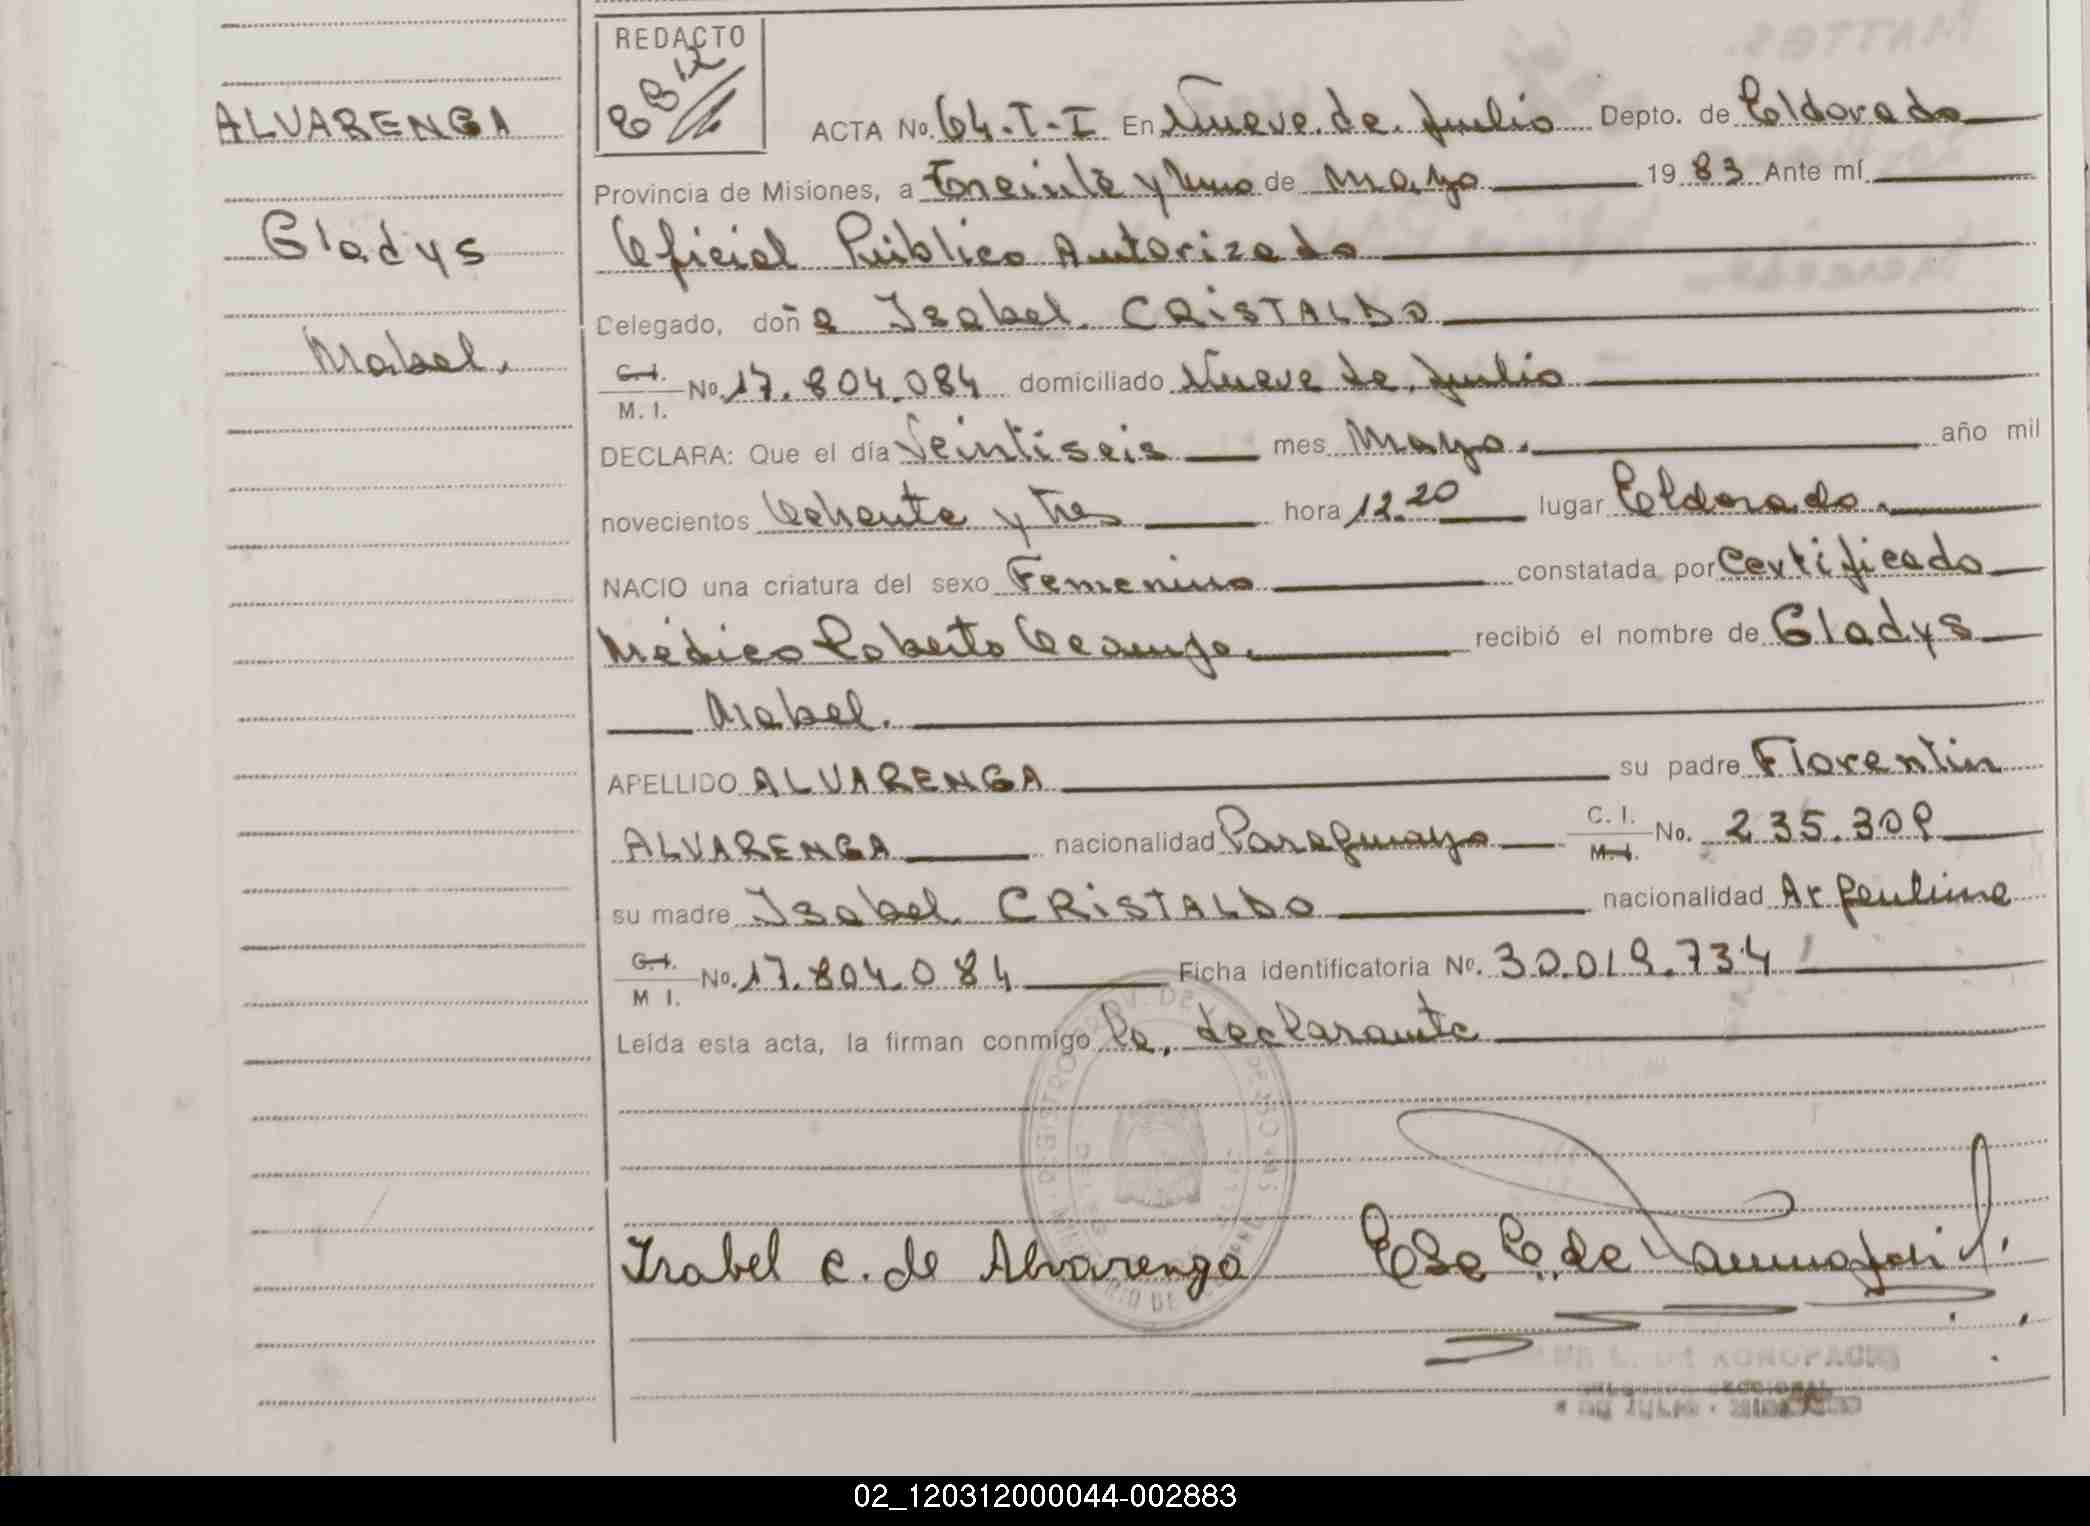 REDACTO
ALVARENGA
Gladys
Mabel.
ACTA No. 64-T-I En Nueve de Julio Depto. de Eldorado
Provincia de Misiones, a Treinta y Uno de Mayo 1983 Ante mí
Oficial Público Autorizado
Delegado, doña Isabel CRISTALDO
C.I. M. I. No. 17.804.084 domiciliado Nueve de Julio
DECLARA: Que el día Veintiseis mes Mayo. año mil
novecientos Ochenta y tres hora 12.20 lugar Eldorado.
NACIO una criatura del sexo Femenino constatada por Certificado
Médico Roberto Ocampo. recibió el nombre de Gladys
Mabel.
APELLIDO ALVARENGA su padre Florentin
ALVARENGA nacionalidad Paraguayo C. I. M.I. No. 235.309
su madre Isabel CRISTALDO nacionalidad Argentina
C.I. M I. No. 17.804.084 Ficha identificatoria No. 30.019.734
Leída esta acta, la firman conmigo la, declarante
Isabel C. de Alvarenga
02_120312000044-002883